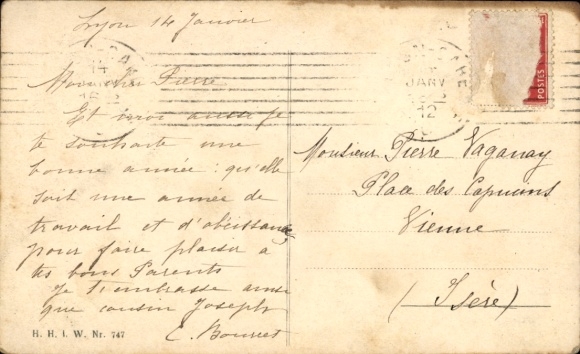 Lyon 14 Janvier
Mon cher Pierre
Et moi aussi je
te souhaite une
bonne année : qu'elle
soit une année de
travail et d'obéissance
pour faire plaisir a
tes bons Parents
Je t'embrasse ainsi
que cousin Joseph
E. Bourret
H. H. i. W. Nr. 747
POSTES
JANV
Monsieur Pierre Vaganay
Place des Capucins
Vienne
(Isère)